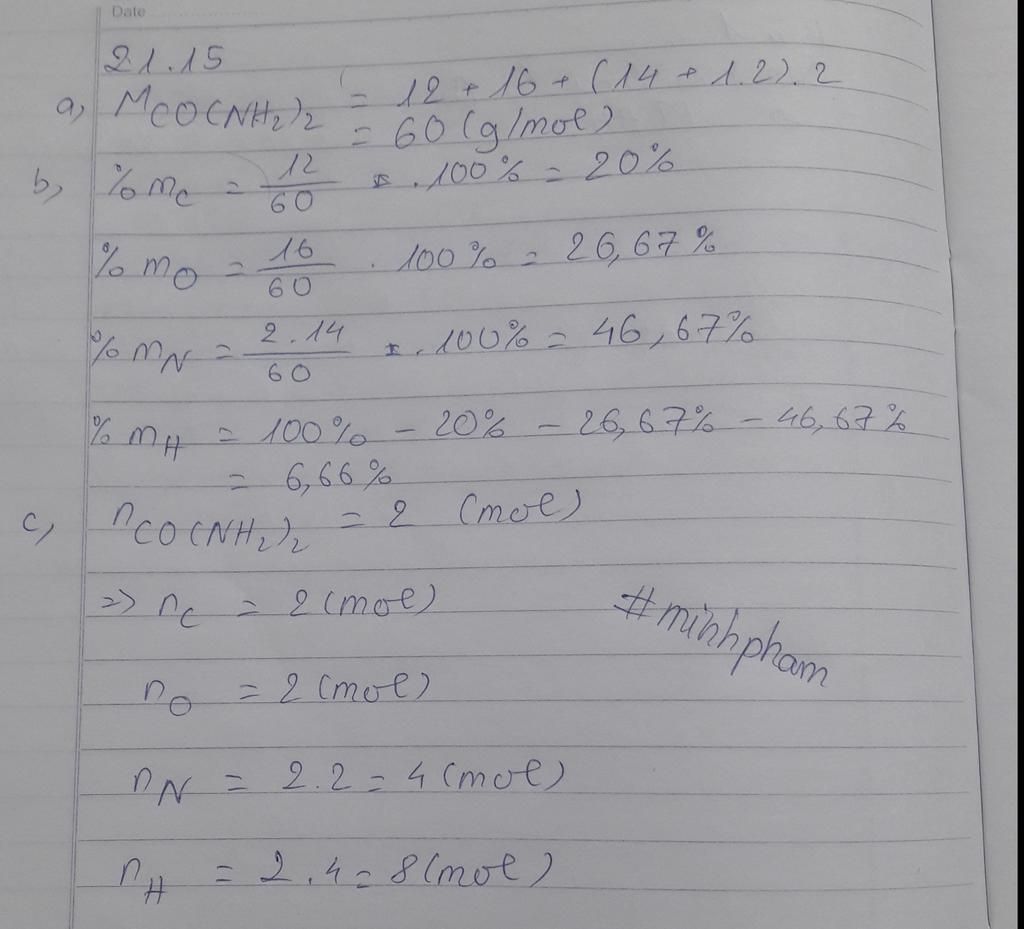 Date
21.15
a, M CO(NH₂)₂ = 12 + 16 + (14 + 1.2).2
= 60 (g/mol)
b, %m_C = 12/60 . 100% = 20%
%m_O = 16/60 . 100% = 26,67%
%m_N = 2.14/60 . 100% = 46,67%
%m_H = 100% - 20% - 26,67% - 46,67%
= 6,66%
c, n CO(NH₂)₂ = 2 (mol)
=> n_C = 2 (mol)
#minhpham
n_O = 2 (mol)
n_N = 2.2 = 4 (mol)
n_H = 2.4 = 8 (mol)